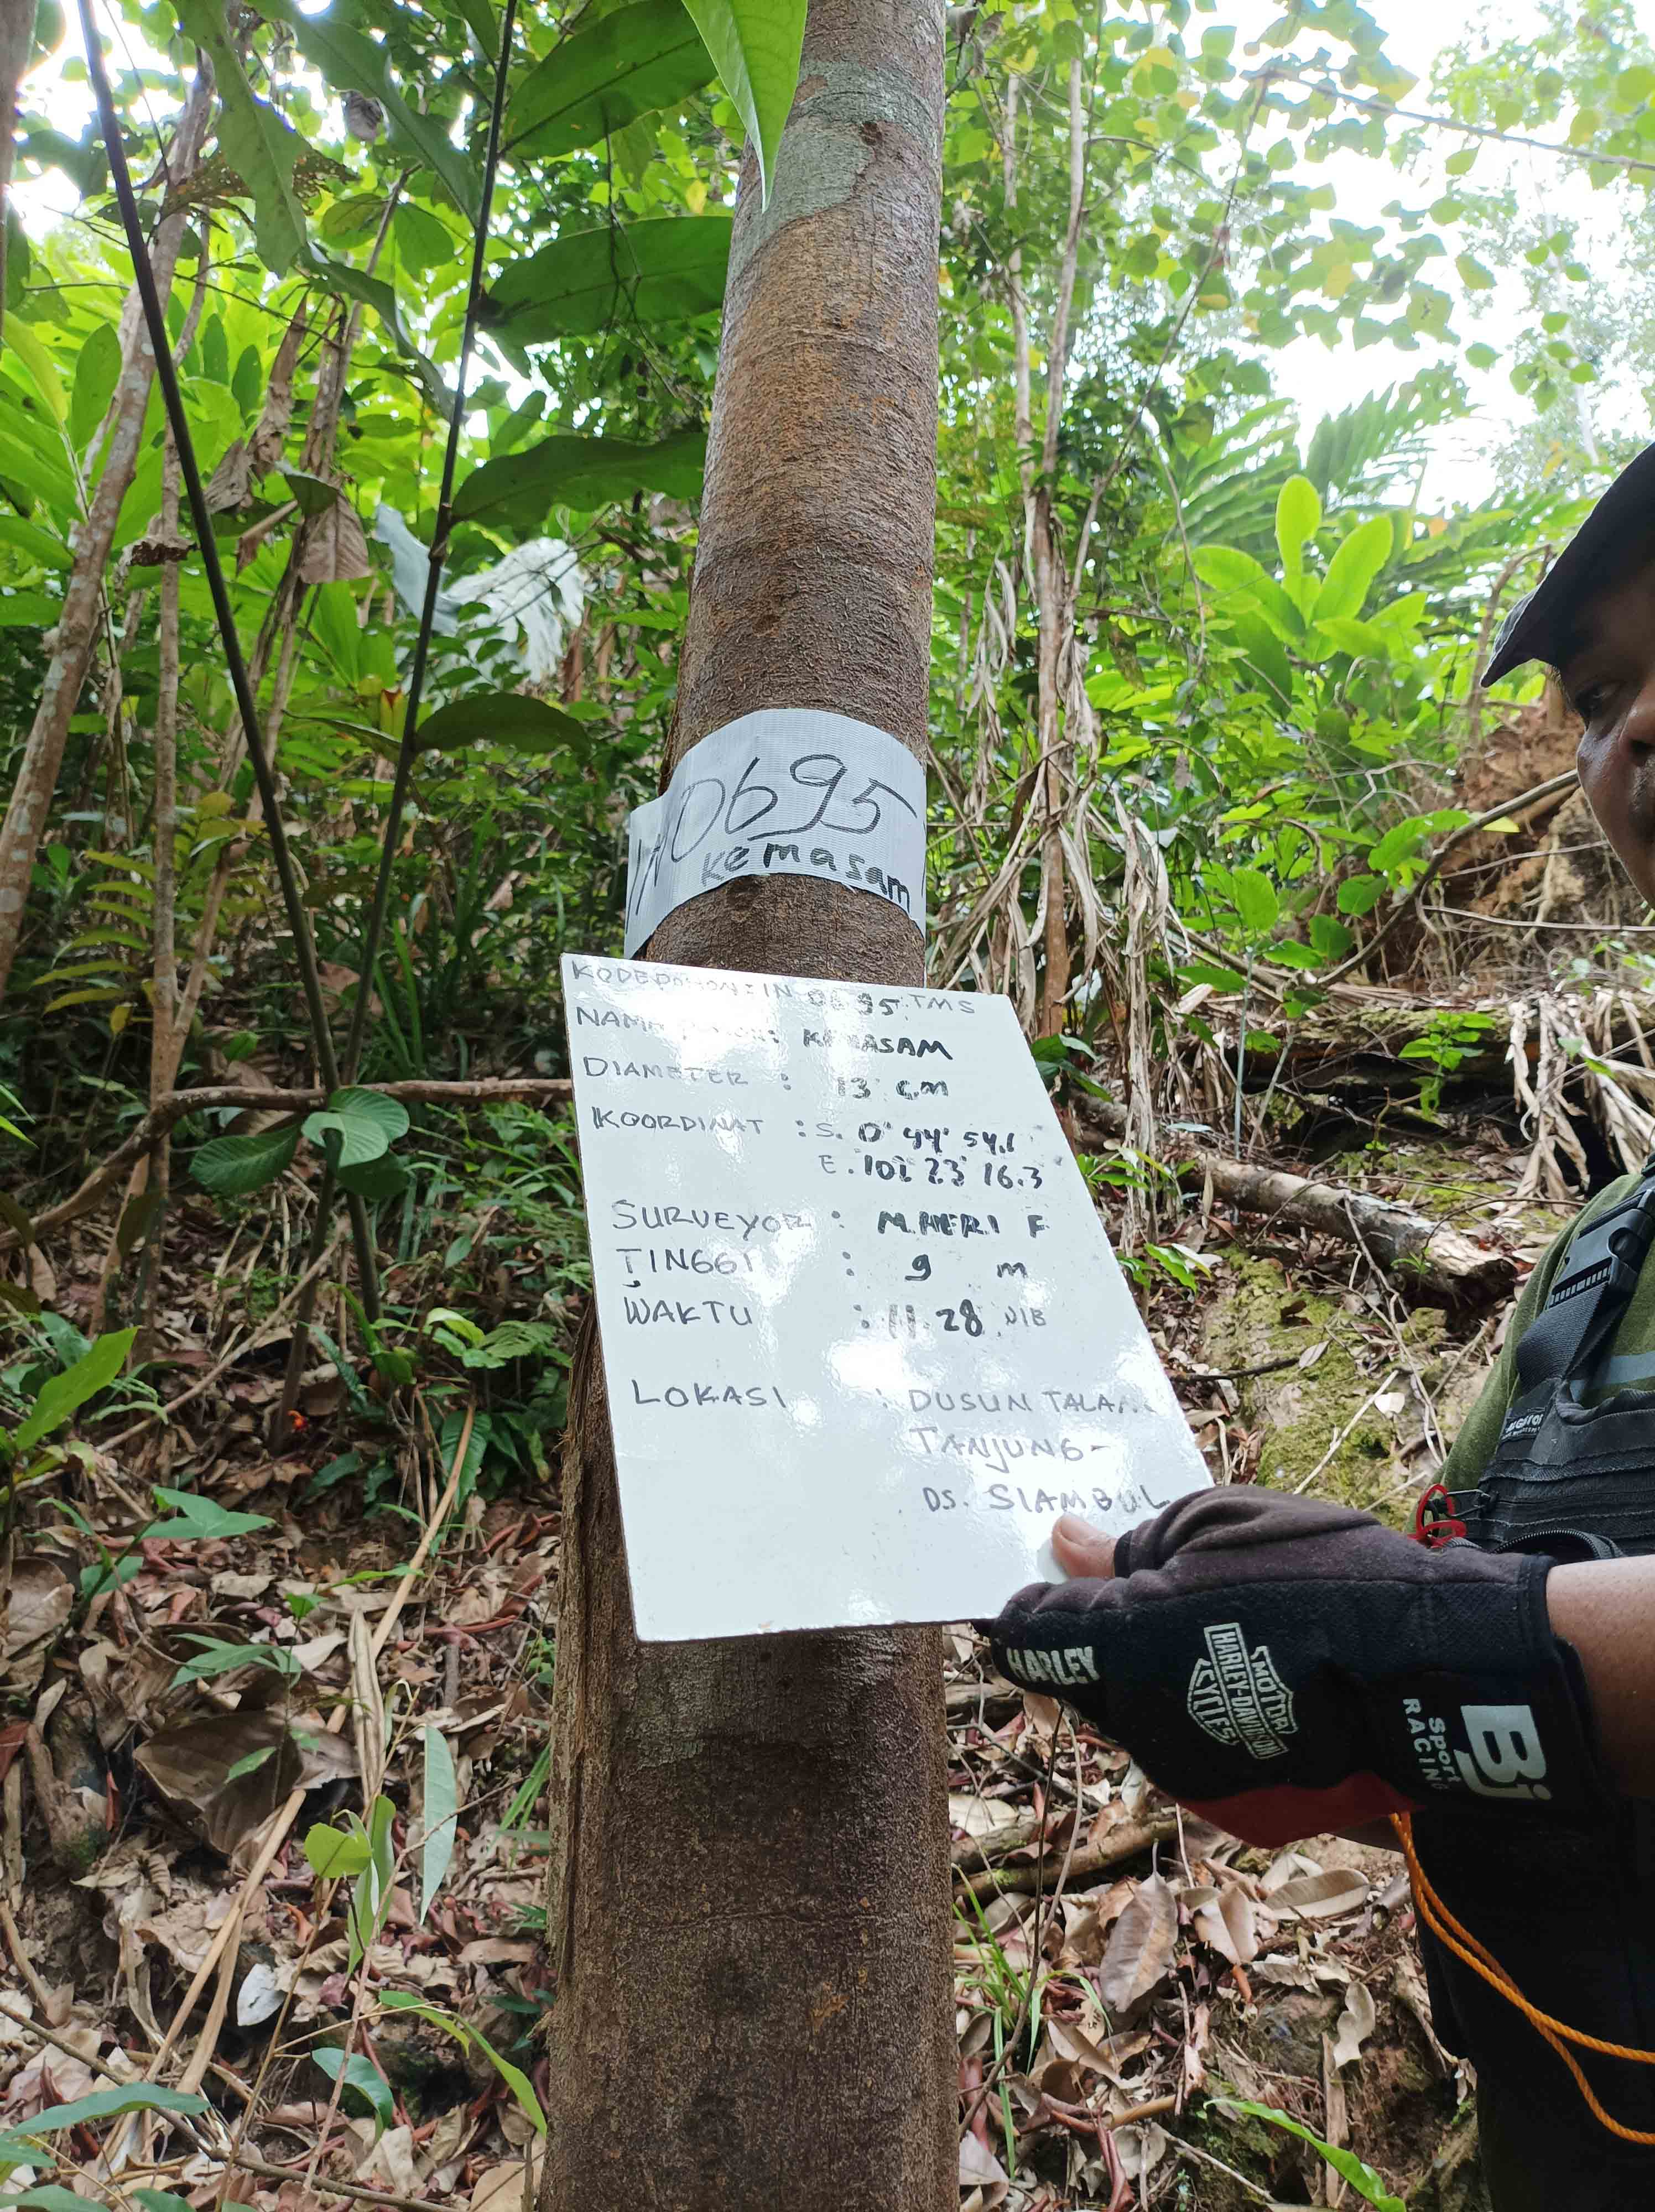 IN 0695
Kemasam
KODEPOHON: IN 0695 TMS
NAMA POHON: KEMASAM
DIAMETER : 13 cm
KOORDINAT : S. 0° 44' 54.1
E. 101° 23' 16.3
SURVEYOR : M.HERI F
TINGGI : 9 m
WAKTU : 11.28 WIB
LOKASI : DUSUN TALANG
TANJUNG-
DS. SIAMBUL
HARLEY
MOTOR
HARLEY-DAVIDSON
CYCLES
Bj
Sport
RACING